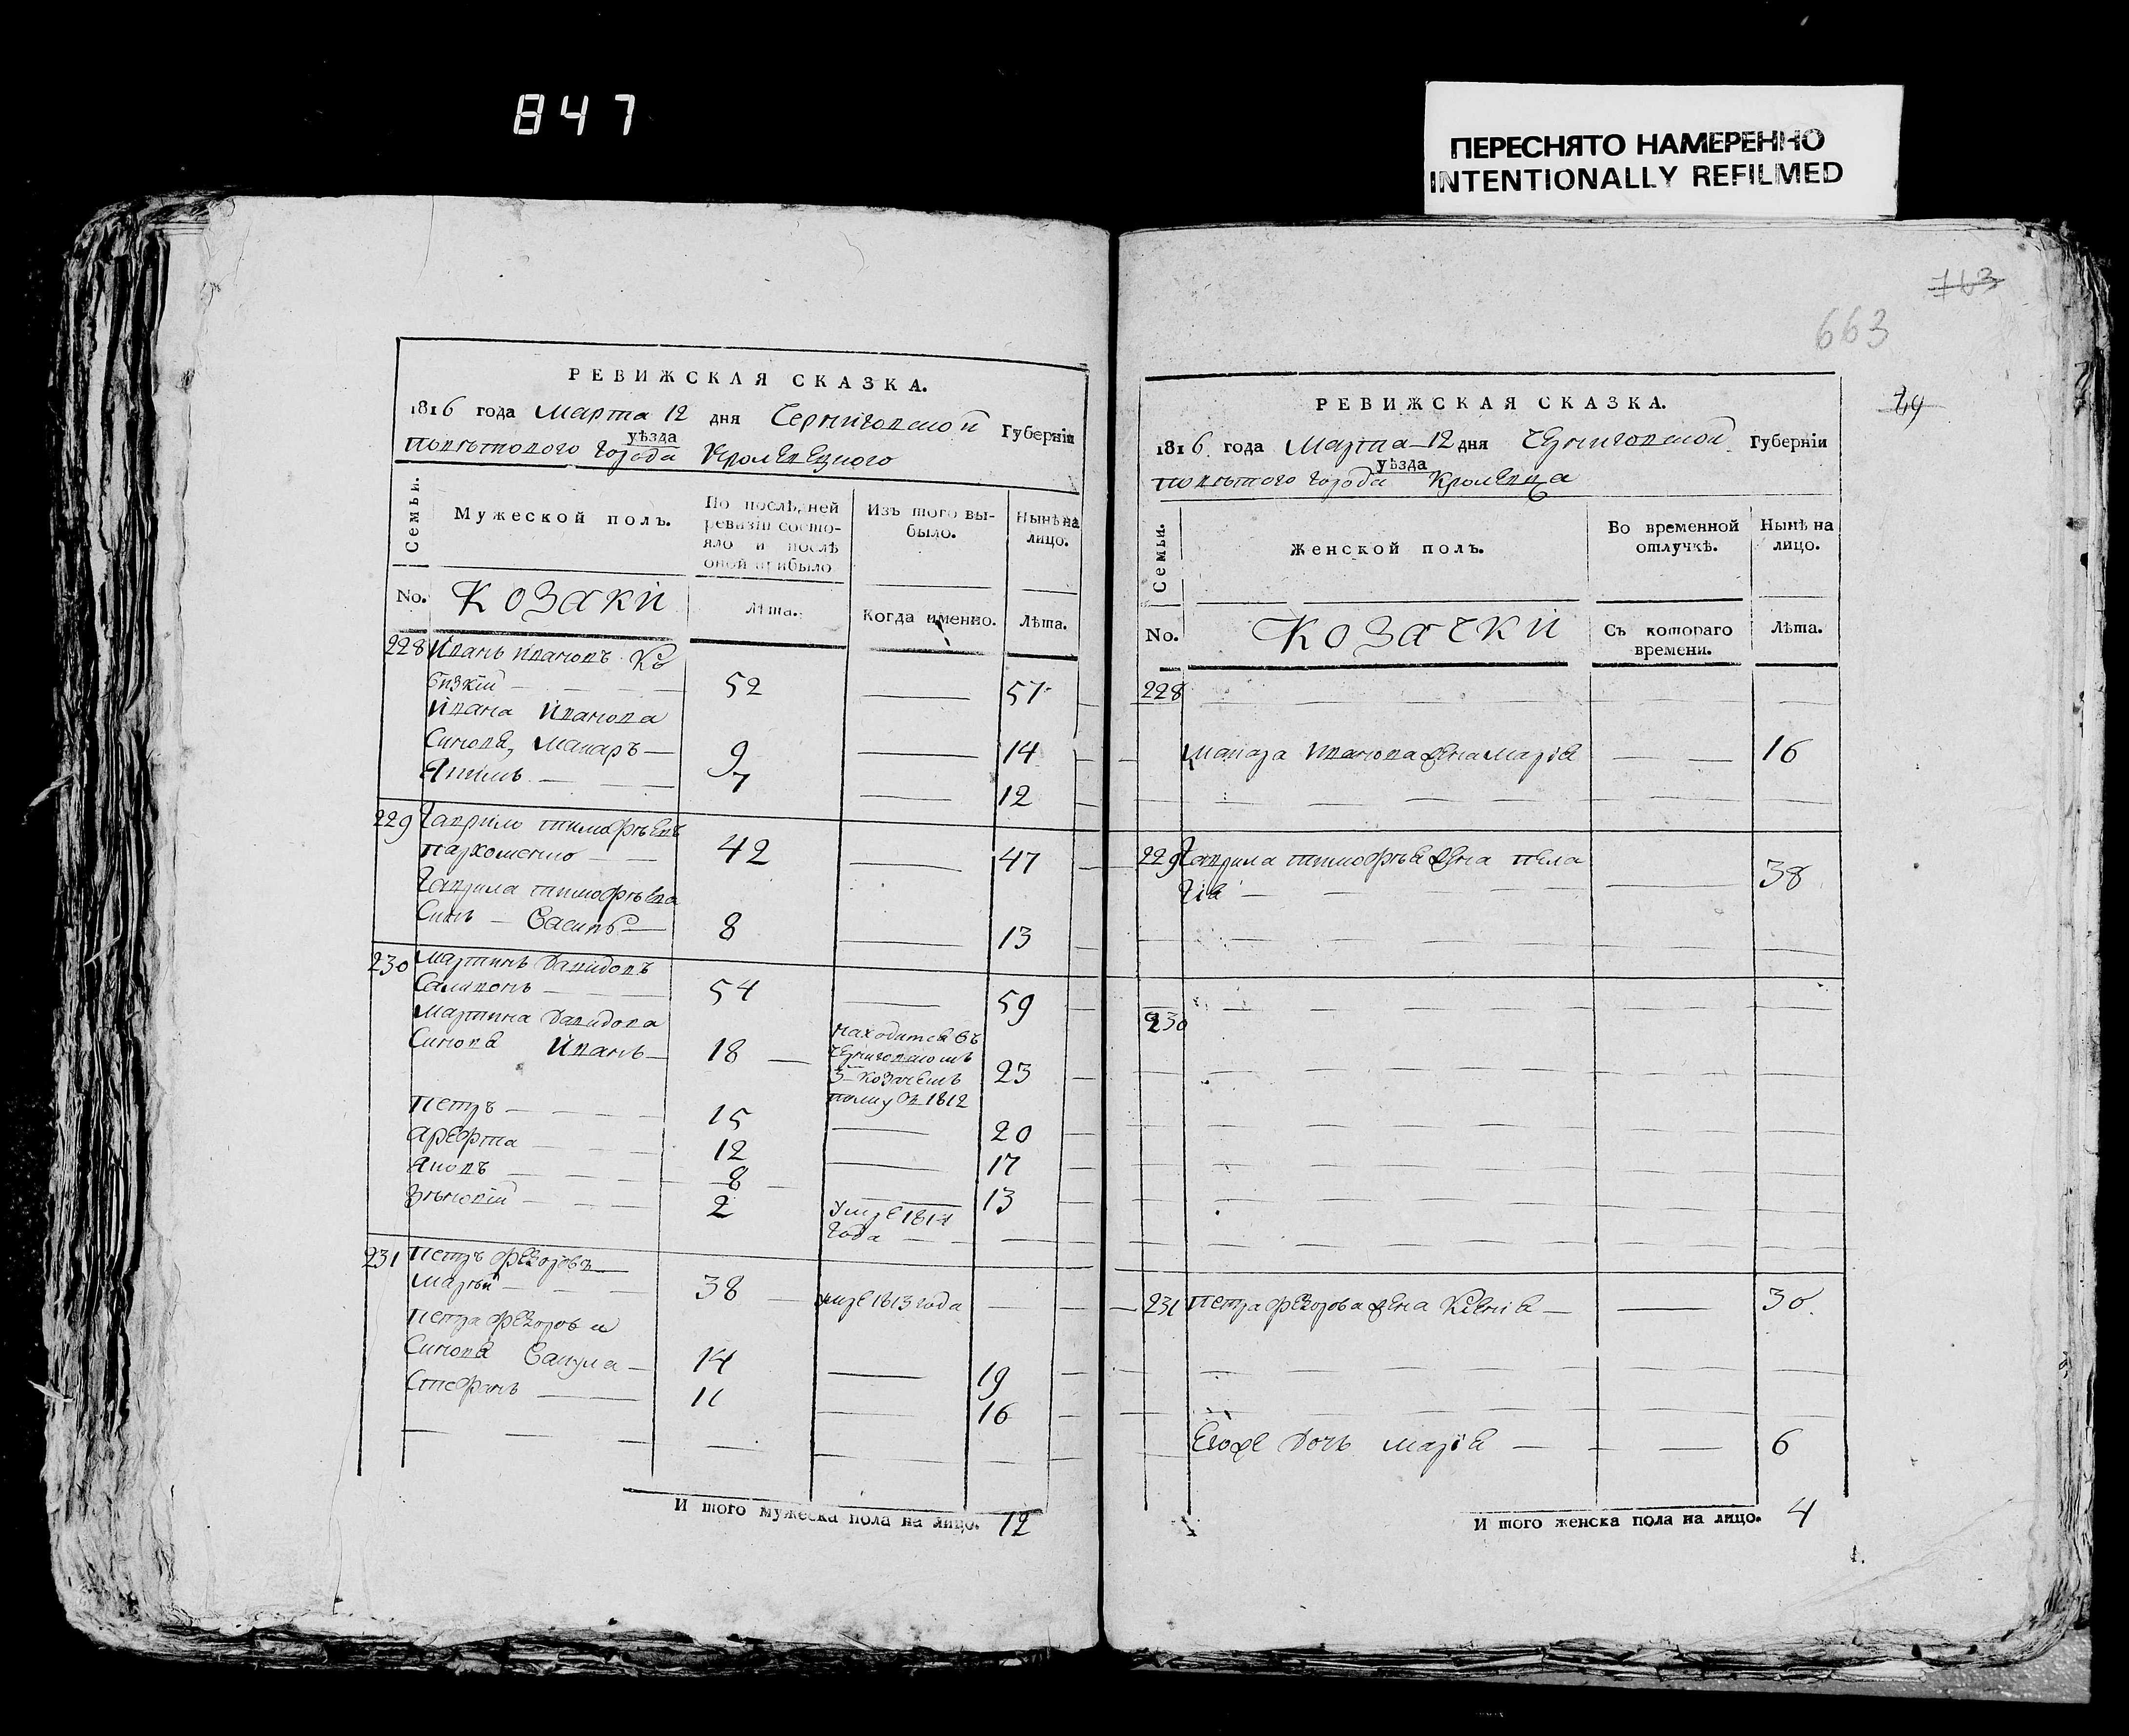 847
ПЕРЕСНЯТО НАМЕРЕННО
INTENTIONALLY REFILMED
763
663
24
РЕВИЖСКАЯ СКАЗКА.
1816 года Марта 12 дня Черниговской Губерніи
уѣзда
повѣтового города Кролевецкого
Семьи.
Мужеской полъ.
По послѣдней
ревизіи состо-
яло и послѣ
оной прибыло
Изъ того вы-
было.
Нынѣ на
лицо.
No. Козаки
Лѣта.
Когда именно.
Лѣта.
228 Иванъ Ивановъ Ко
бизкій 52 57
Ивана Иванова
Синовя, Макаръ 9 14
Якимъ 7 12
229 Гаврило Тимофѣевъ
Пархоменко 42 47
Гаврила Тимофѣева
Синъ Василь 8 13
230 Мартинъ Давидовъ
54 59
Мартина Давидова
Синовя Иванъ 18 находится въ
Черниговскомъ
3 козачемъ
полку въ 1812 23
Петръ 15 20
Арефта 12 17
Яковъ 8 13
Зѣновій 2 умре 1814
года
231 Петръ Федоровъ
38 умре 1813 года
Петра Федорова
Синовя Вакула 14 19
Стефанъ 11 16
И того мужеска пола на лицо. 12
РЕВИЖСКАЯ СКАЗКА.
1816 года Марта 12 дня Черниговской Губерніи
уѣзда
повѣтого города Кролевца
Семьи.
Женской полъ.
Во временной
отлучкѣ.
Нынѣ на
лицо.
No. Козачки
Съ котораго
времени.
Лѣта.
228
Макара Иванова жена Марія 16
229 Гаврила Тимофѣева жена Пела
гія 38
230
231 Петра Федорова жена Ксенія 30.
Егоже дочь Марія 6
И того женска пола на лицо. 4